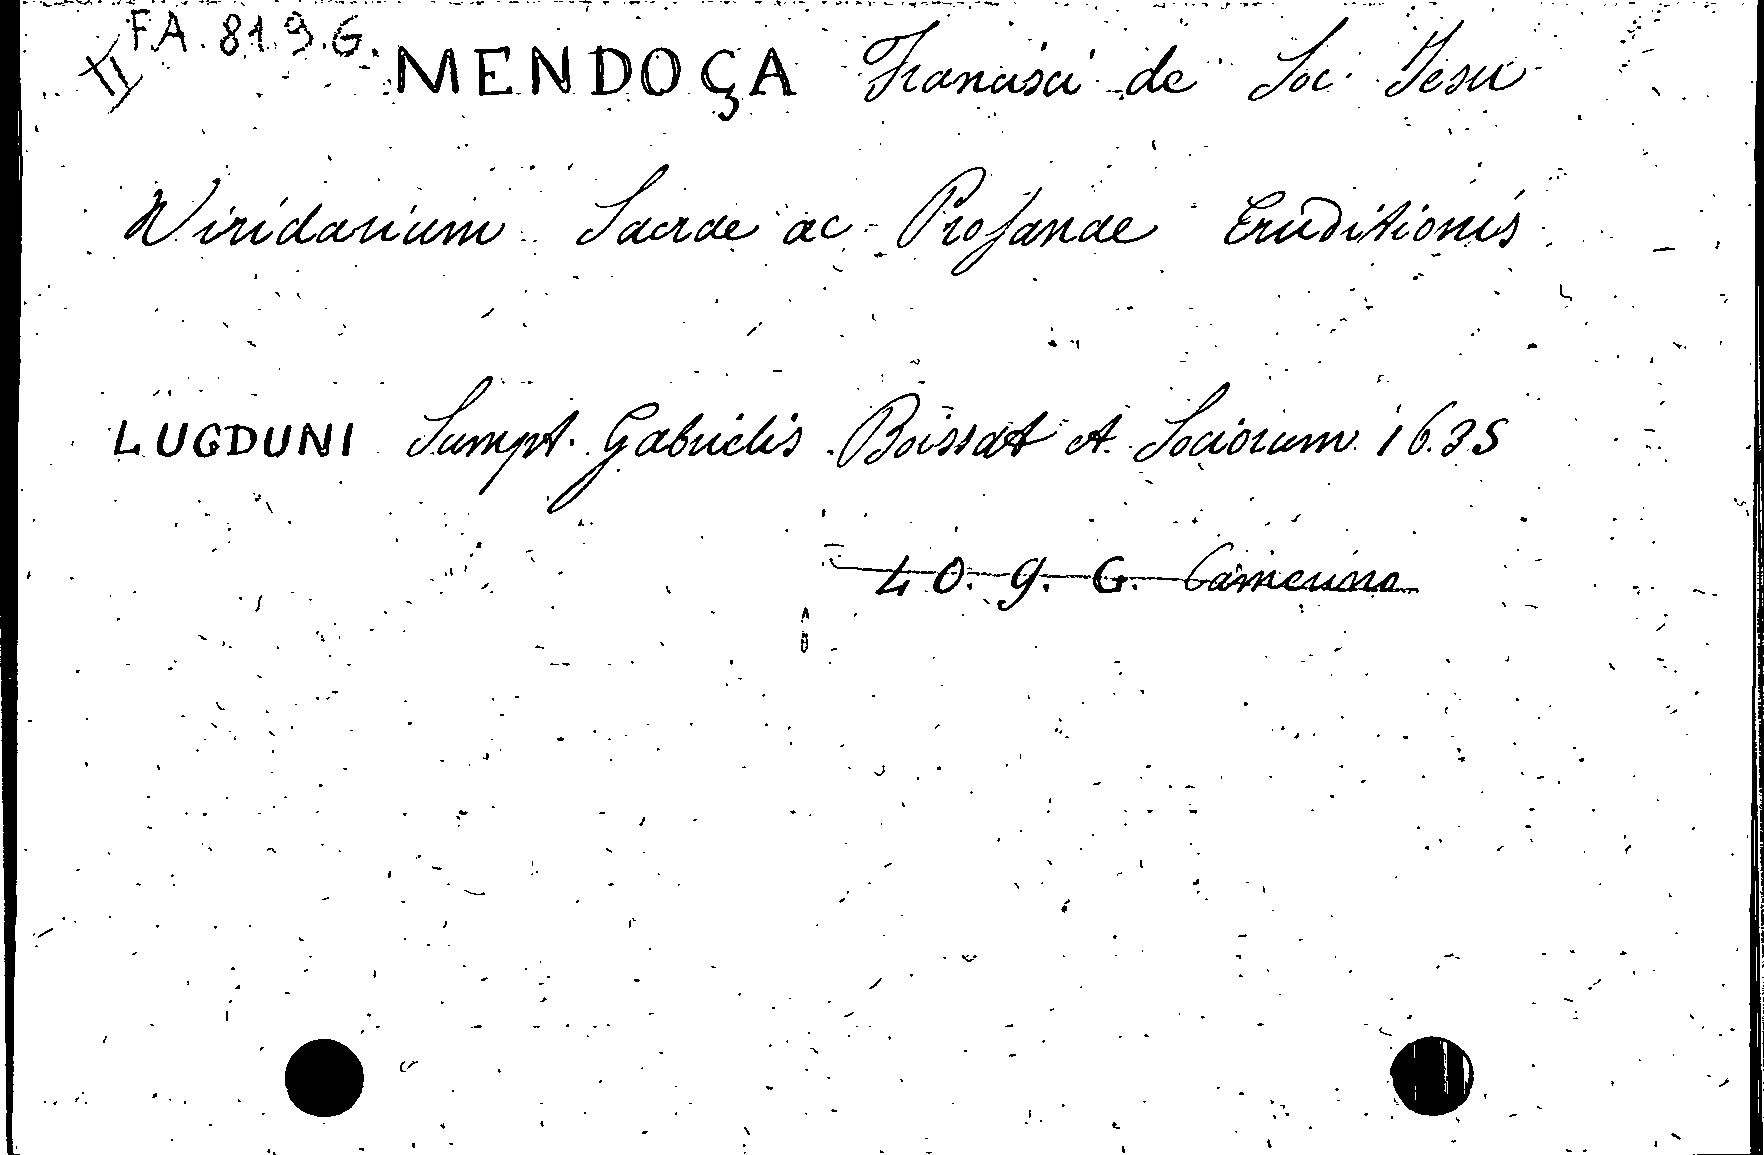 II F.A. 81.9.G.
MENDOÇA Francisci de Soc. Jesu
Viridarium Sacrae ac Profanae Eruditionis
LUGDUNI Sumpt. Gabrielis Boissat et Sociorum 1635
40. 9. G. Camerino